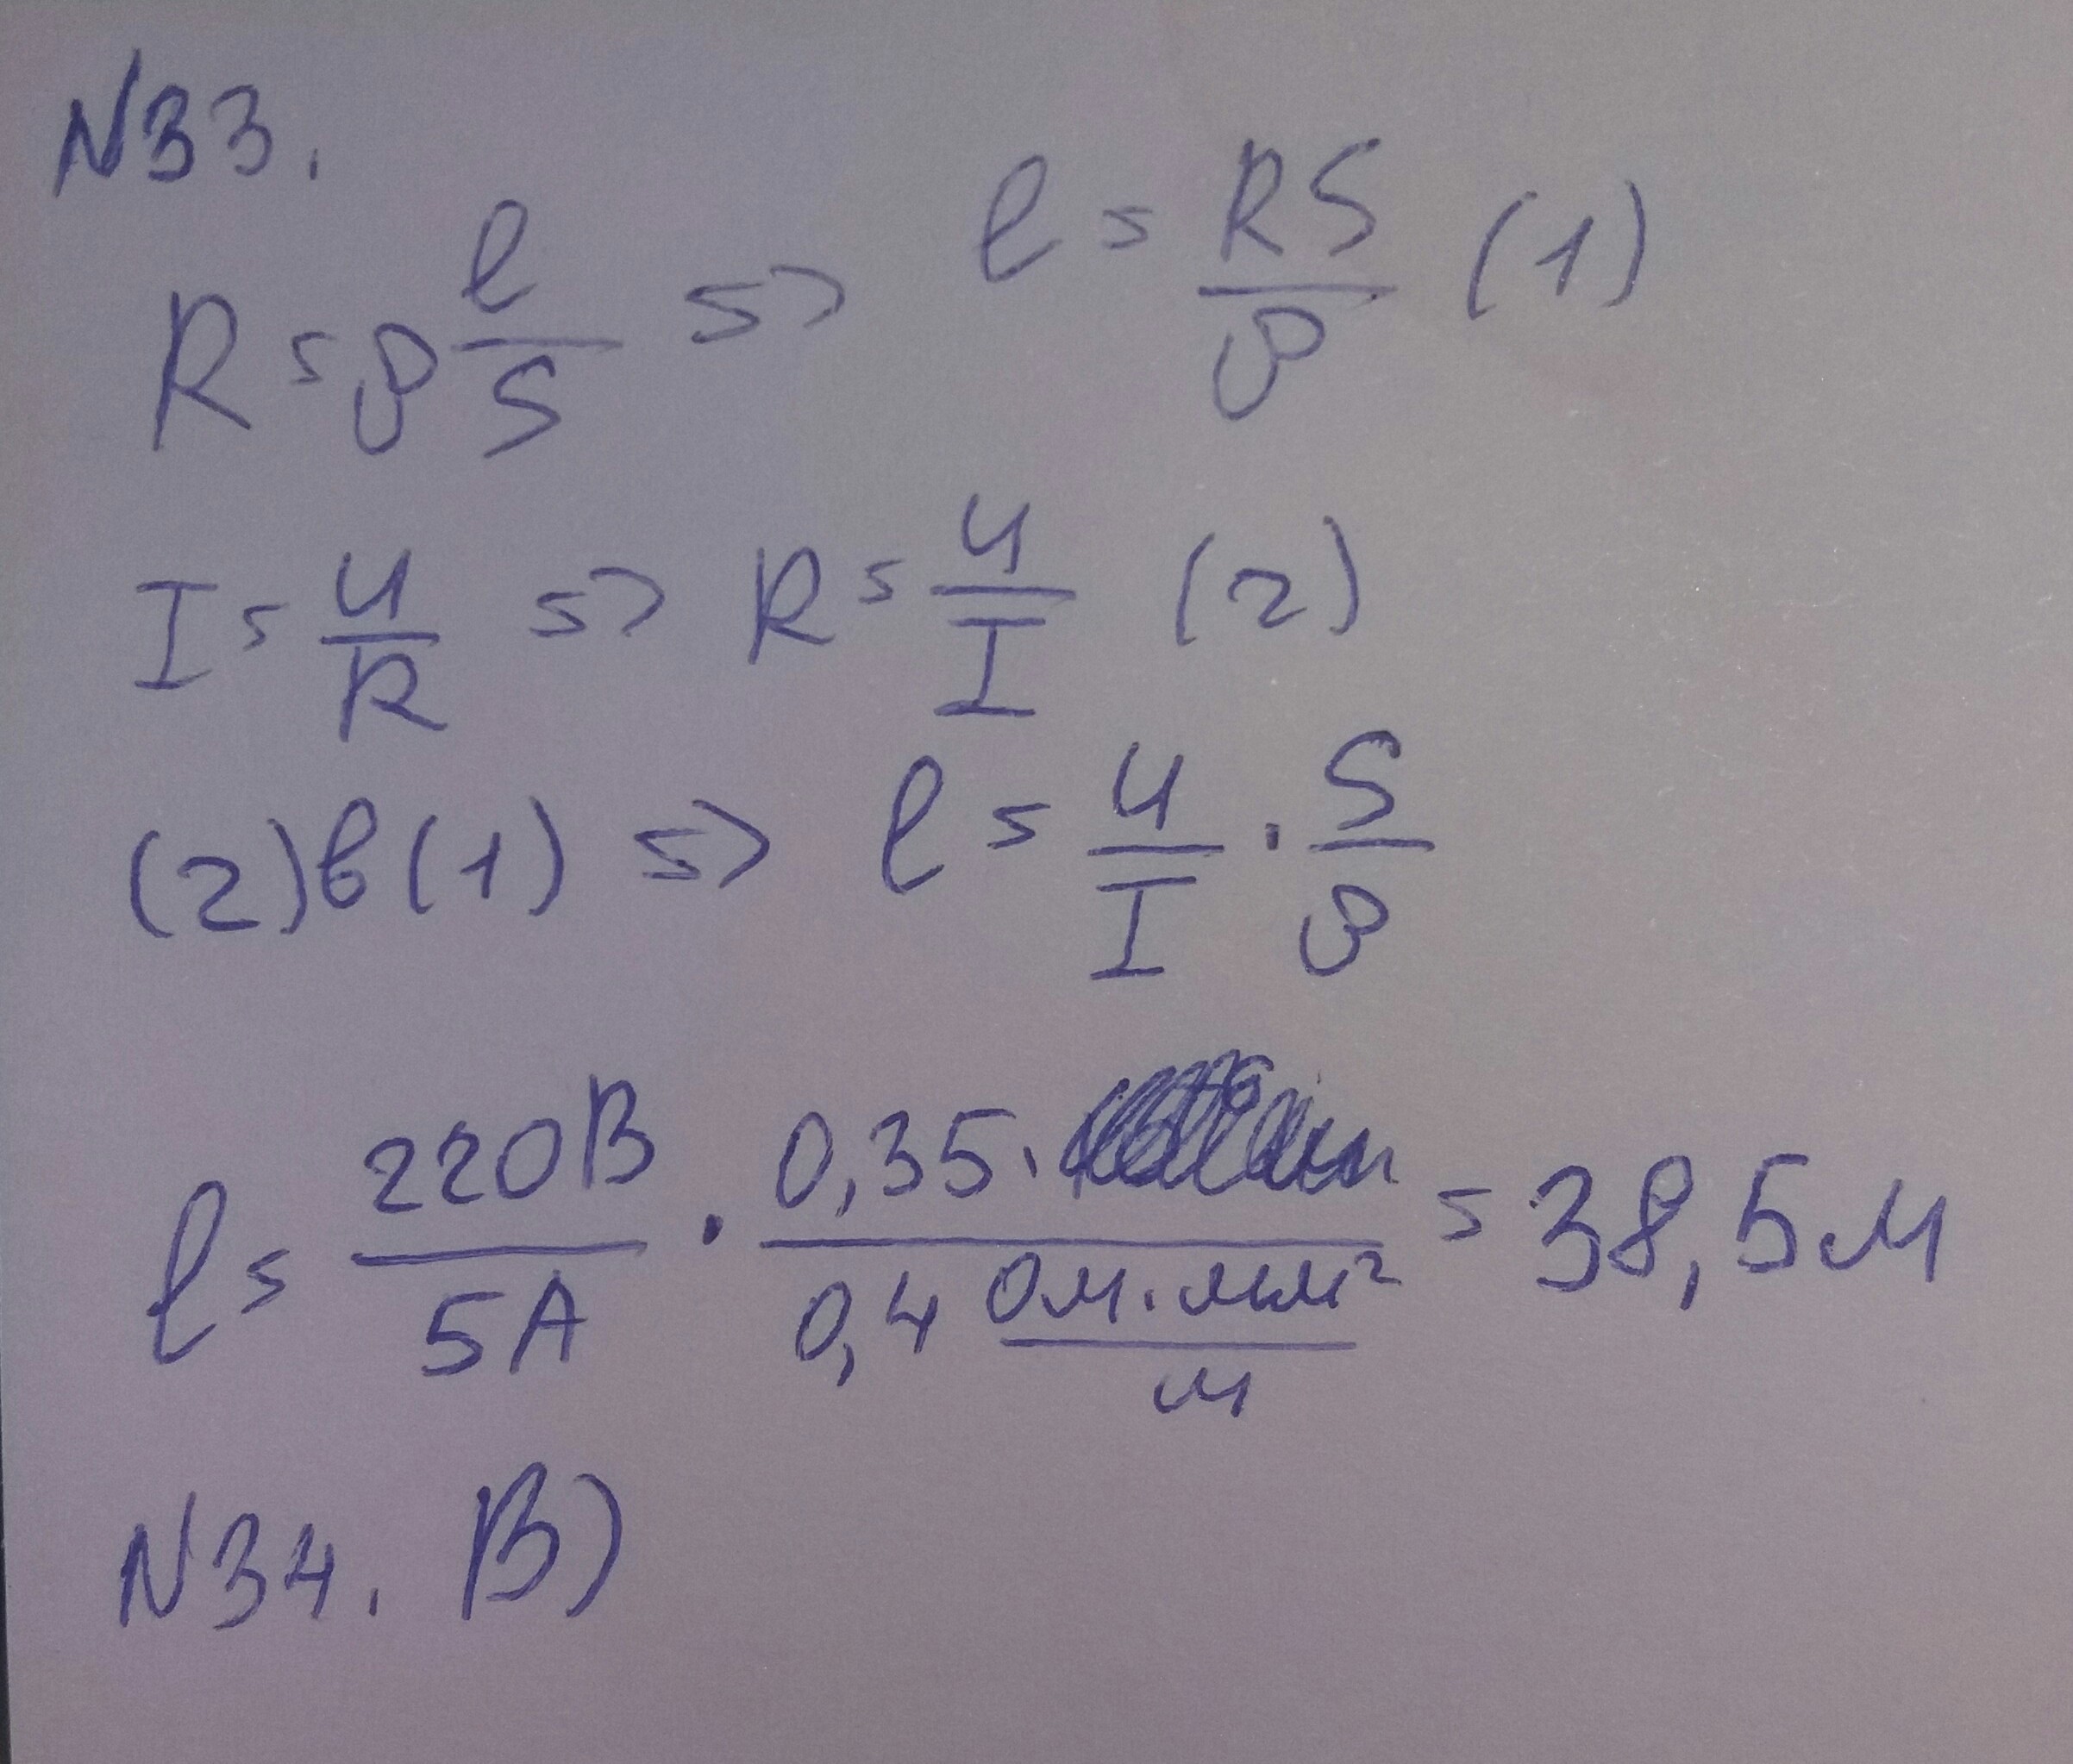 N33.
R = ρ l/S => l = RS/ρ (1)
I = U/R => R = U/I (2)
(2) в (1) => l = U/I · S/ρ
l = 220В/5А · 0,35·/0,4 Ом·мм²/м = 38,5м
N34. В)